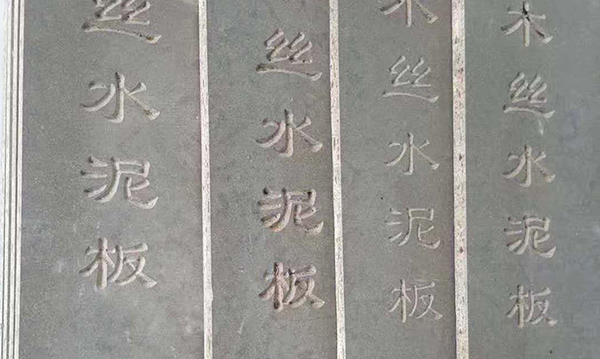 丝水泥板
丝水泥板
木丝水泥板
木丝水泥板